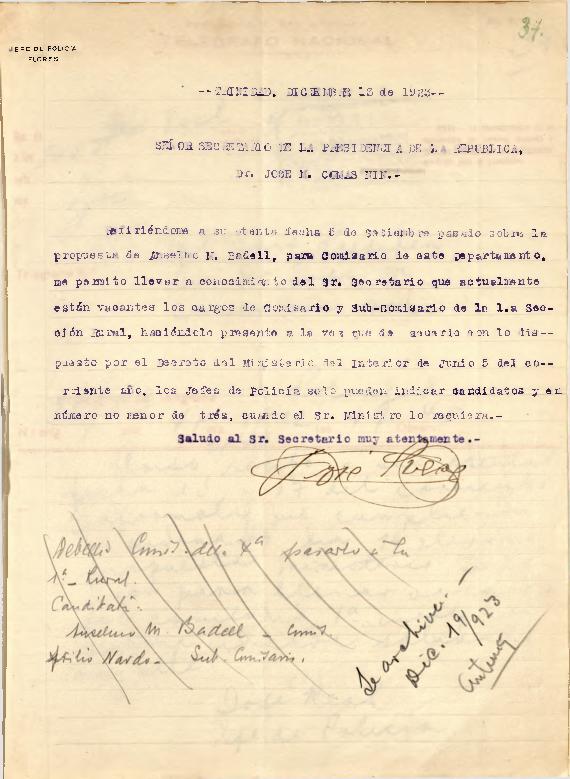 37.
JEFE DE POLICIA
FLORES
--TRINIDAD, DICIEMBRE 13 de 1923--
SEÑOR SECRETARIO DE LA PRESIDENCIA DE LA REPUBLICA,
Dr. JOSE M. COMAS NIN.-
Refiriéndome a su atenta fecha 5 de Setiembre pasado sobre la
propuesta de Anselmo M. Badell, para Comisario de este Departamento,
me permito llevar a conocimiento del Sr. Secretario que actualmente
están vacantes los cargos de Comisario y Sub-Comisario de la 1.a Sec-
ción Rural, haciéndole presente a la vez que de acuerdo con lo dis--
puesto por el Decreto del Ministerio del Interior de Junio 5 del co--
rriente año, los Jefes de Policía solo pueden indicar candidatos y en
número no menor de trés, cuando el Sr. Ministro lo requiera.-
Saludo al Sr. Secretario muy atentamente.-
José
Comis. de 
1ª - Rural.
Anselmo M. Badell - Comis.
Nardo - Sub. Comisario.
Se archive. -
Dic. 19/923